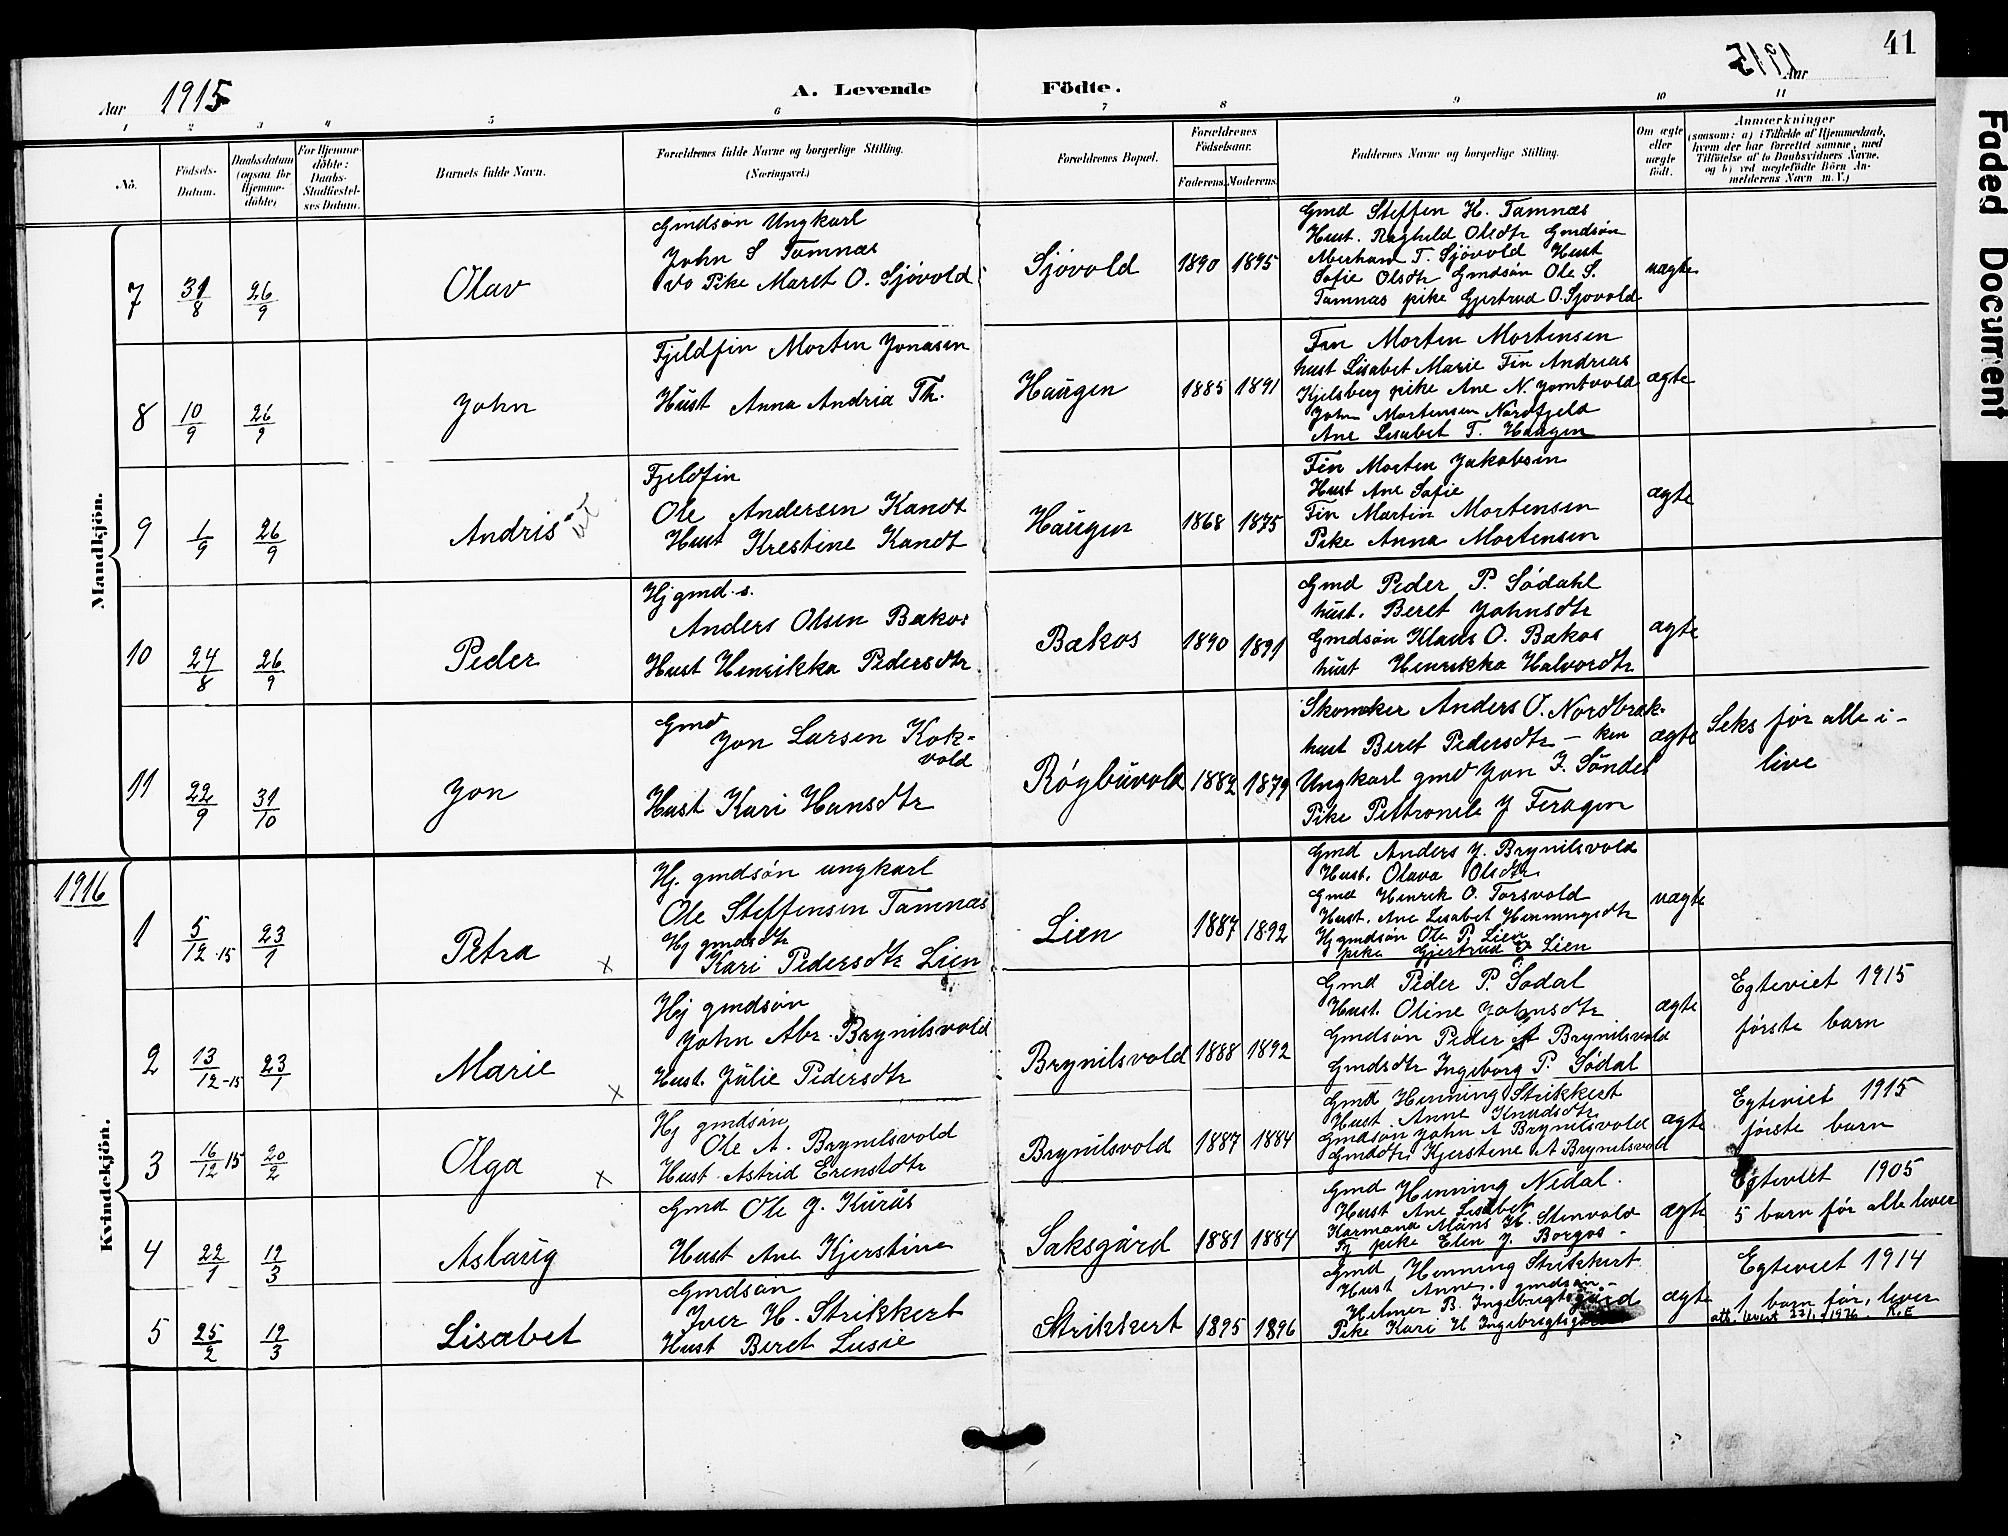 41
Aar 1915
A. Levende Födte.
1915 Aar
1 2 3 4 5 6 7 8 9 10 11
No.
Födsels-Datum.
Daabsdatum (ogsaa for Hjemme-döbte)
For Hjemme-döbte: Daabs-Stadfæstel-ses Datum.
Barnets fulde Navn.
Forældrenes fulde Navne og borgerlige Stilling. (Næringsvei.)
Forældrenes Bopæl.
Forældrenes Födselsaar.
Faderens. Moderens.
Faddernes Navne og borgerlige Stilling.
Om ægte eller uægte födt.
Anmærkninger
(saasom: a) i Tilfælde af Hjemmedaab,
hvem der har forrettet samme, med
Tilföielse af to Daabsvidners Navne,
og b) ved uægtefödte Börn An-
melderens Navn m. V.)
Mandkjön.
7 31/8 26/9 Olav
Gmdsön Ungkarl
John S Tamnæs
do Pike Maret O. Sjövold
Sjövold 1890 1895
Gmd Steffen H. Tamnæs
Hust. Raghild Olsdtr Gmdsön
Aberham T. Sjövold Hust
Sofie Olsdtr Gmdsön Ole S.
Tamnæs pike Gjertrud O. Sjövold
uægte
8 10/9 26/9 John
Fjeldfin Morten Jonasen
Hust Anna Andria Th.
Haugen 1885 1891
Fin Morten Mortensen
hust Lisabet Marie Fin Andreas
Kjelsberg pike Ane N. Jomtvold
John Mortensen Nordfjeld
Ane Lisabet T. Haugen
ægte
9 1/9 26/9 Andris
Fjeldfin
Ole Andersen Kandt
Hust Krestine Kandt
Haugen 1868 1875
Fin Morten Jakobsen
Hust Ane Sofie
Fin Martin Mortensen
Pike Anna Mortensen
ægte
10 24/8 26/9 Peder
Hj gmd.s.
Anders Olsen Bækos
Hust Henrikka Pedersdtr.
Bækos 1890 1891
Gmd Peder P. Södahl
hust. Beret Johnsdtr
Gmdsön Klaus O. Bækos
hust Henrikka Halvordtr
ægte
11 22/9 31/10 Jon
Gmd
Jon Larsen Kok-
vold
Hust Kari Hansdtr
Rögbuvold 1882 1879
Skomker Anders O. Nordbræk-
hust Beret Pedersdtr - ken
Ungkarl gmd Jon J. Söndel
Pike Pettronele J Feragen
ægte
Seks för alle i-
live
1916
Kvindekjön.
1 5/12.15 23/1 Petra x
Hj. gmdsön ungkarl
Ole Steffensen Tamnæs
Hj gmdsdtr
Kari Pedersdtr Lien
Lien 1887 1892
Gmd Anders J. Brynilsvold
Hust. Olava Olsdtr
Gmd Henrik O. Torsvold
Hust. Ane Lisabet Henningsdtr
Hj gmdsön Ole P. Lien
pike Gjertrud O Lien
uægte
2 13/12-15 23/1 Marie x
Hj gmdsön
John Abr. Brynilsvold
Hust. Julie Pedersdtr
Brynilsvold 1888 1892
Gmd Peder P. Södal
Hust. Oline Johnsdtr
Gmdsön Peder A Brynilsvold
Gmdsdtr Ingeborg P. Södal
ægte
Egteviet 1915
förste barn
3 16/12 15 20/2 Olga x
Hj gmdsön
Ole A. Brynilsvold
Hust Astrid Erenstdtr
Brynilsvold 1887 1884
Gmd Henning Strikkert
Hust. Anne Knudsdtr
Gmdsön John A Brynilsvold
Gmddtr. Kjerstene A Brynilsvold
ægte
Egteviet 1915
förste barn
4 22/1 19/3 Aslaug
Gmd Ole J. Kurås
Hust Ane Kjerstine
Saksgård 1881 1884
Gmd Henning Nedal.
Hust Ane Lisabet
Karmand Måns H. Stenvold
Fj pike Elen J. Borgos
ægte
Egteviet 1905
5 barn för alle lever
5 25/2 19/3 Lisabet
Gmdsön
Iver H. Strikkert
Hust Beret Lusie
Strikkert 1895 1896
Gmd Henning Strikkert
Hust Anne. gmdsön -
Helmer B. Ingebrigtsgård
Pike Kari H Ingebrigtsg
ægte
Egteviet 1914
1 barn för, lever
att. utvist 27/1 1976. R.E
Faded Document